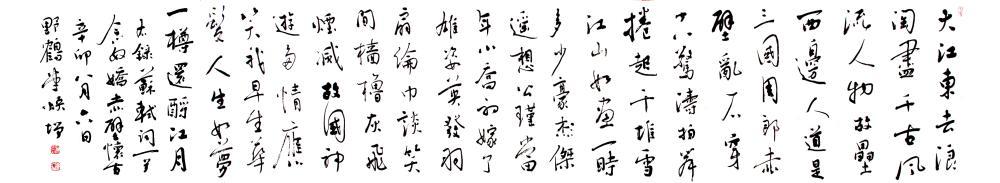 大江東去浪
淘盡千古風
流人物故壘
西邊人道是
三國周郎赤
壁亂石穿
空驚濤拍岸
捲起千堆雪
江山如畫一時
多少豪傑
遙想公瑾當
年小喬初嫁了
雄姿英發羽
扇綸巾談笑
間檣櫓灰飛
煙滅故國神
遊多情應
笑我早生華
髮人生如夢
一樽還酹江月
錄蘇軾詞
念奴嬌赤壁懷古
辛卯八月六日
野鶴堂煥增